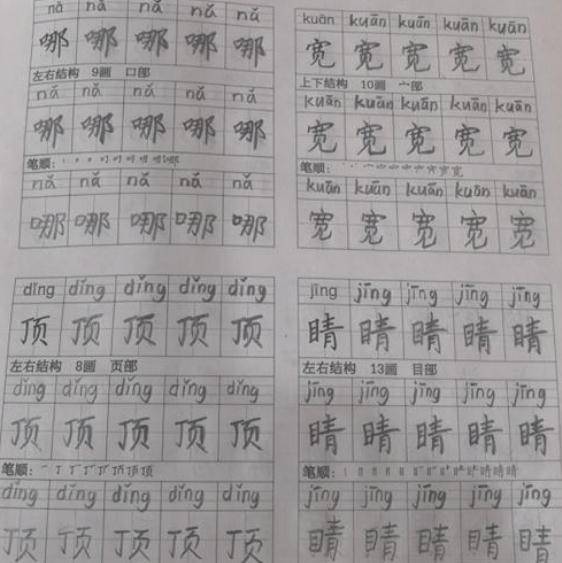 nǎ nǎ nǎ nǎ nǎ
哪 哪 哪 哪 哪
左右结构 9画 口部
nǎ nǎ nǎ nǎ nǎ
哪 哪 哪 哪 哪
笔顺:
nǎ nǎ nǎ nǎ nǎ
哪 哪 哪 哪 哪
kuān kuān kuān kuān kuān
宽 宽 宽 宽 宽
上下结构 10画 宀部
kuān kuān kuān kuān kuān
宽 宽 宽 宽 宽
笔顺:
kuān kuān kuān kuān kuān
宽 宽 宽 宽 宽
dǐng dǐng dǐng dǐng dǐng
顶 顶 顶 顶 顶
左右结构 8画 页部
dǐng dǐng dǐng dǐng dǐng
顶 顶 顶 顶 顶
笔顺:
dǐng dǐng dǐng dǐng dǐng
顶 顶 顶 顶 顶
jīng jīng jīng jīng jīng
睛 睛 睛 睛 睛
左右结构 13画 目部
jīng jīng jīng jīng jīng
睛 睛 睛 睛 睛
笔顺:
jīng jīng jīng jīng jīng
睛 睛 睛 睛 睛